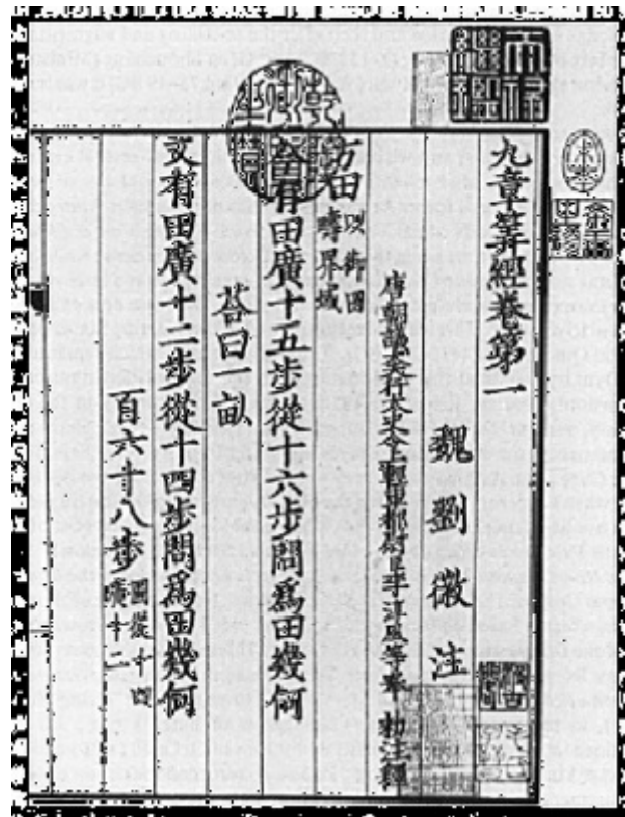 九章筭經卷第
魏劉徽注
唐朝議大夫行太史令上輕車都尉臣李淳風等奉 勑
方田以御田疇界域
今有田廣十五步從十六步問爲田幾何
荅曰一畝
又有田廣十二步從十四步問爲田幾何
百六十八步圖從十四廣十二